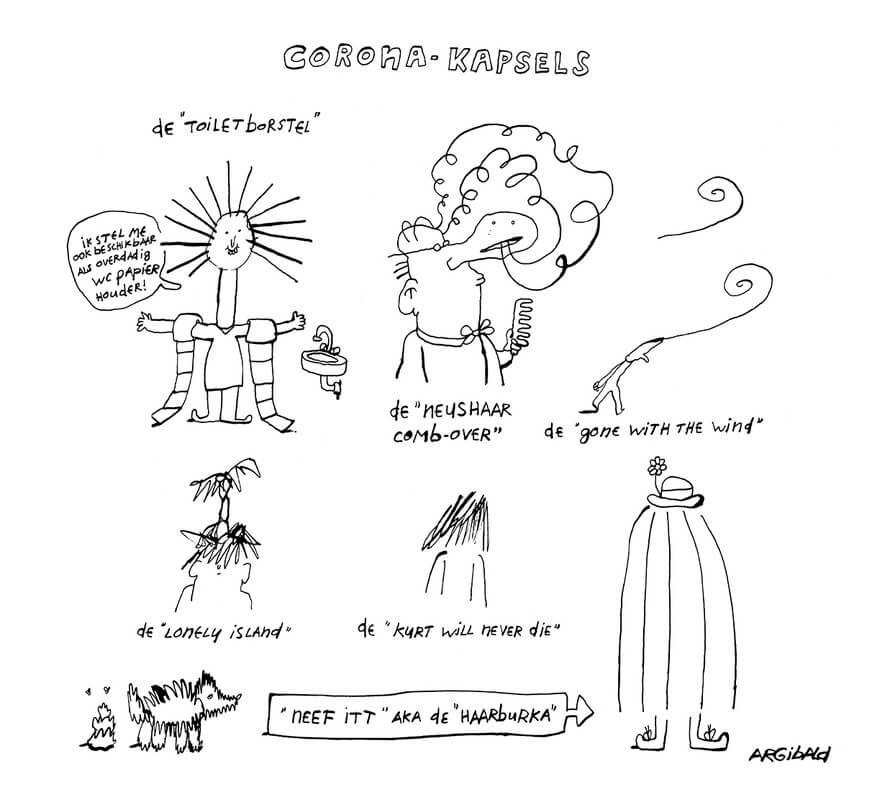 CORONA-KAPSELS
de "TOiLETbORSTEL"
iK STEL ME
OOK bESCHiKbAAR
ALS OVERDADig
WC PAPiER
HOUDER!
de "NEUSHAAR
COMb-OVER"
de "gone WiTH THE Wind"
de "LONELY iSLAND"
de "KURT WiLL NEVER diE"
"NEEF iTT" AKA de "HAARbURKA"
ARGibALd